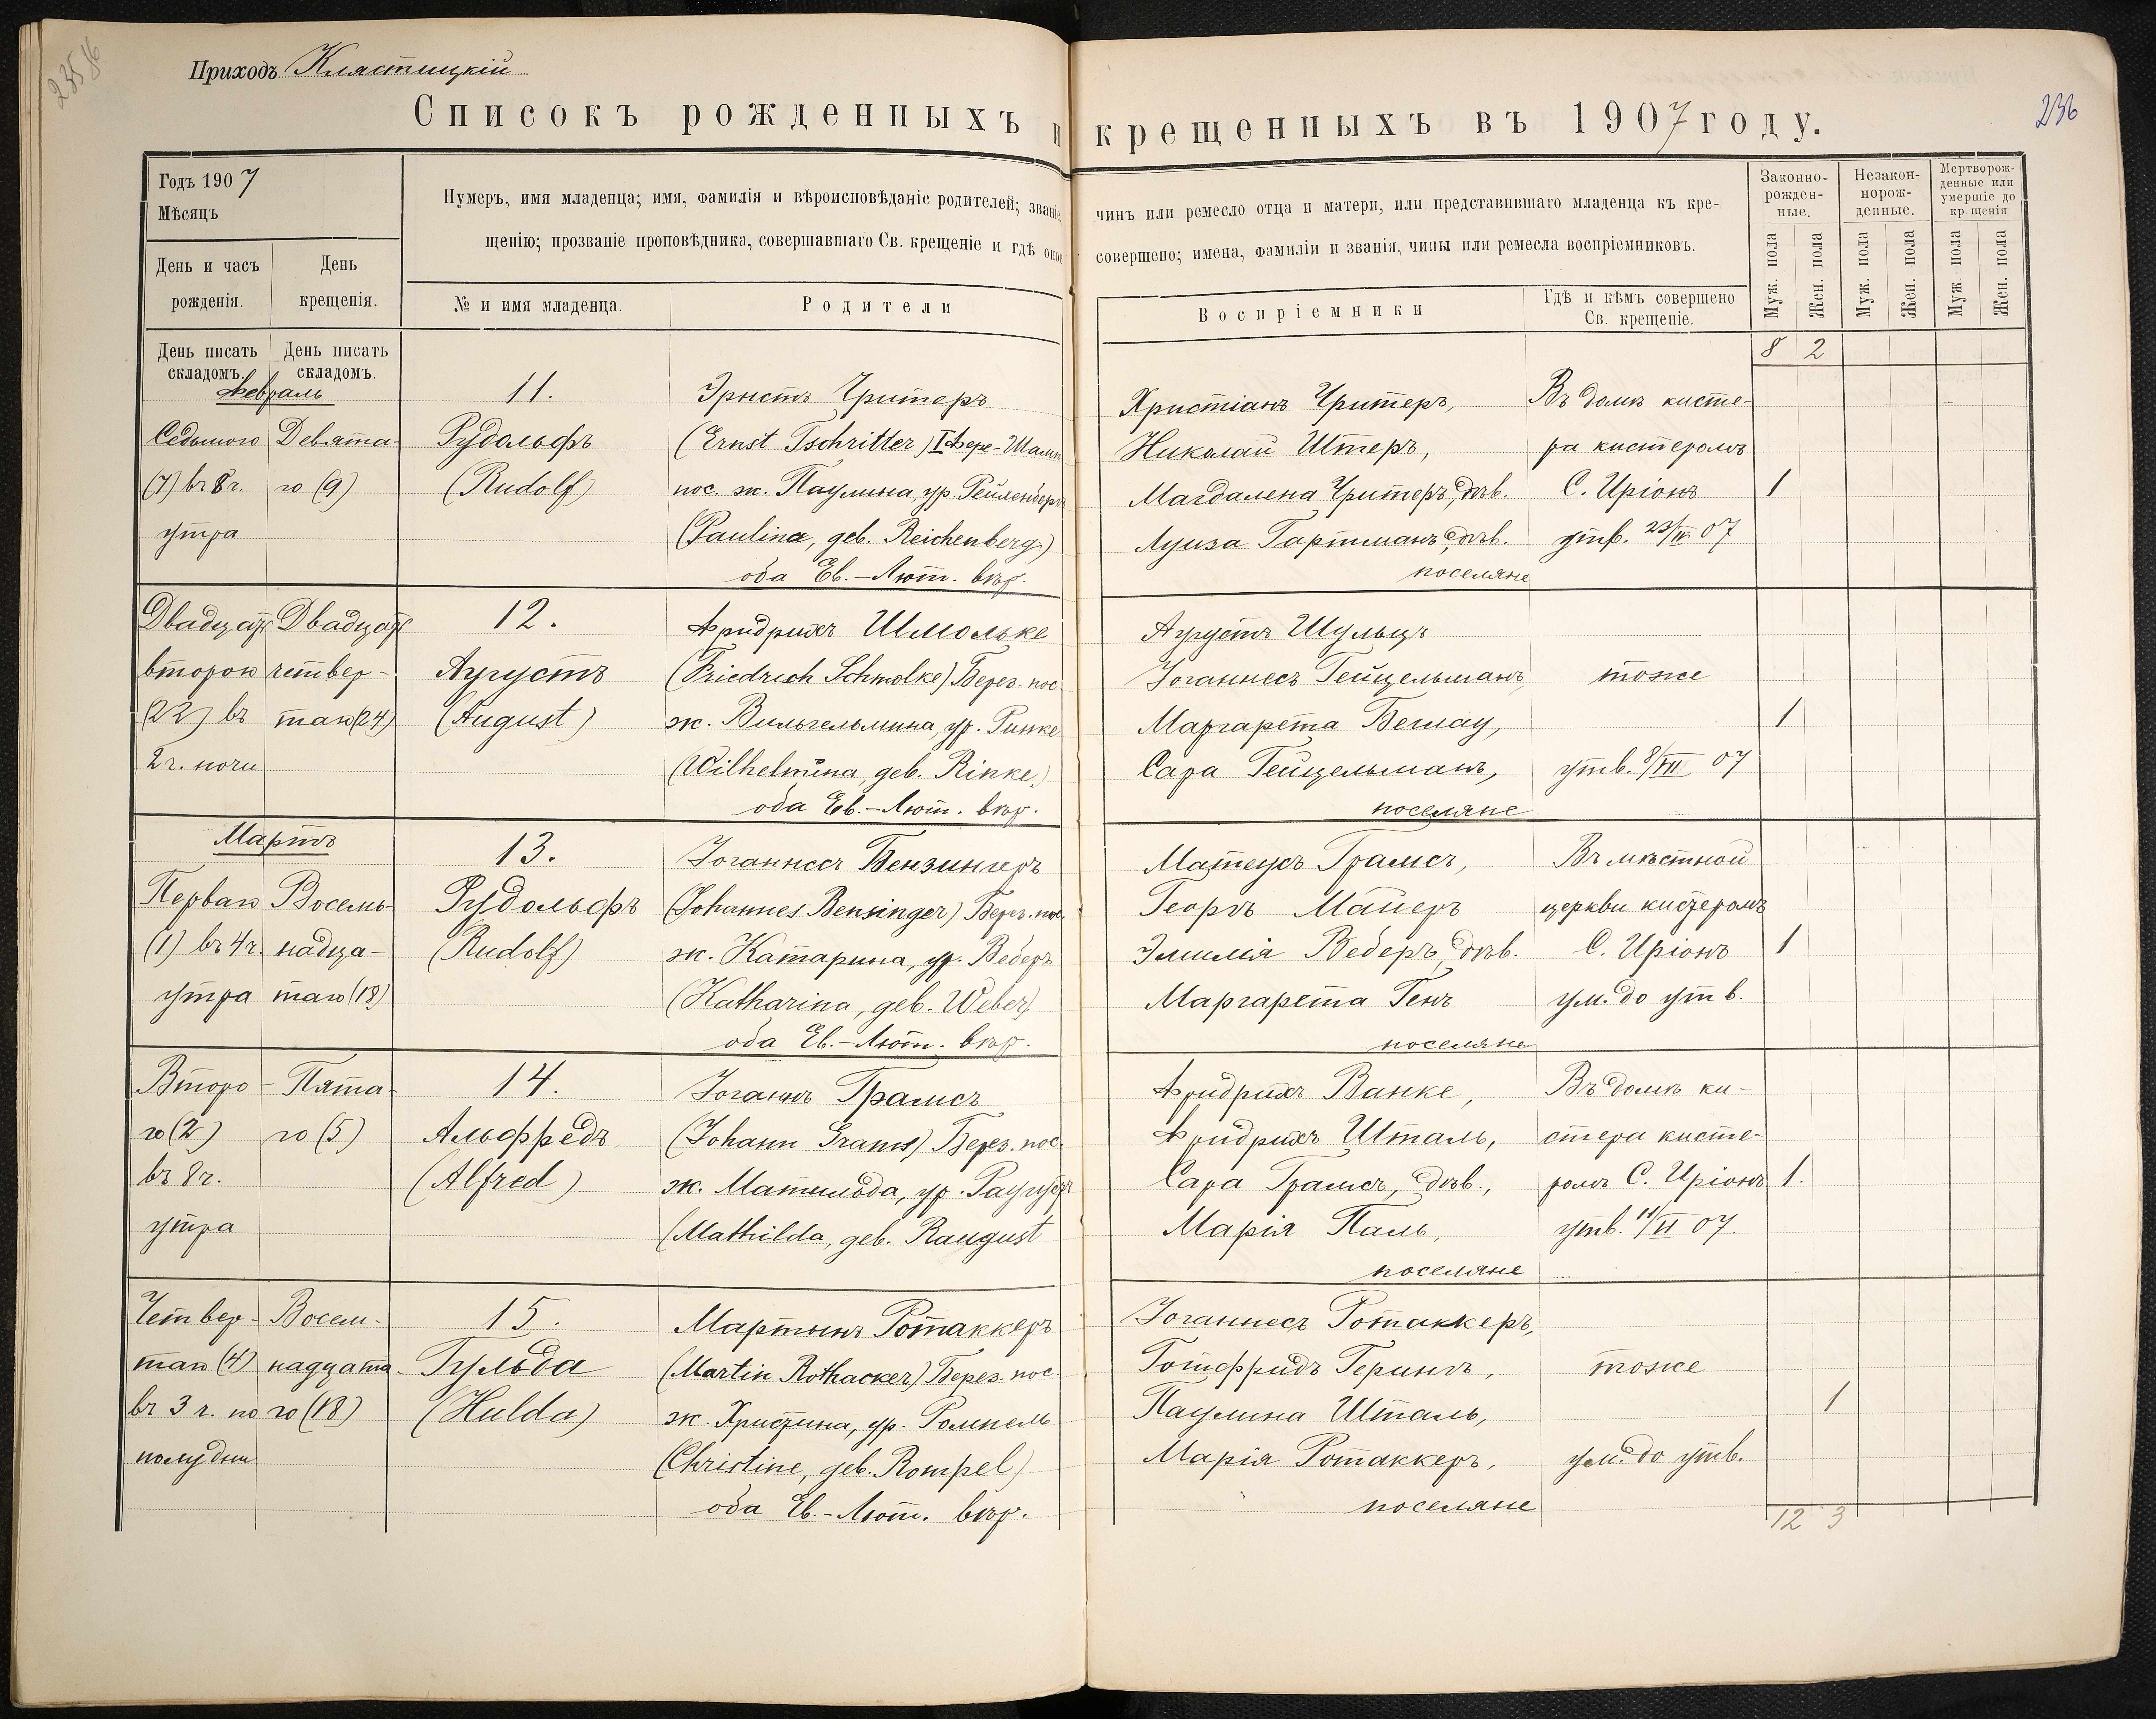 235
Приходъ Кластицкій
Списокъ рожденныхъ и крещенныхъ въ 1907 году.
236
Годъ 1907
Мѣсяцъ
День и часъ рожденія.
День крещенія.
Нумеръ, имя младенца; имя, фамилія и вѣроисповѣданіе родителей; званіе,
щенію; прозваніе проповѣдника, совершавшаго Св. крещеніе и гдѣ оное
№ и имя младенца.
Родители
День писать складомъ.
День писать складомъ.
чинъ или ремесло отца и матери, или представившаго младенца къ кре-
совершено; имена, фамиліи и званія, чины или ремесла воспріемниковъ.
Воспріемники
Гдѣ и кѣмъ совершено
Св. крещеніе.
Законно-
рожден-
ные.
Незакон-
норож-
денные.
Мертворож-
денные или
умершіе до
крещенія
Муж. пола
Жен. пола
Муж. пола
Жен. пола
Муж. пола
Жен. пола
8 2
Февраль
Седьмого
(7) въ 8 ч.
утра
Девята-
го (9)
11.
Рудольфъ
(Rudolf)
Эрнстъ Чритеръ
(Ernst Tschritter) I Фере-Шамп
пос. ж. Паулина, ур. Рейхенбергъ
(Paulina, geb. Reichenberg)
оба Ев.-Лют. вѣр.
Христіанъ Чритеръ,
Николай Штеръ,
Магдалена Чритеръ, дѣв.
Луиза Гартманъ, дѣв.
поселяне
Въ домѣ кисте-
ра кистеромъ
С. Иріонъ
утв. 23/IV 07
1
Двадцать
второго
(22) въ
2 ч. ночи
Двадцать
четвер-
таго (24)
12.
Аугустъ
(August)
Фридрихъ Шмольке
(Friedrich Schmolke) Берез. пос.
ж. Вильгельмина, ур. Ринке
(Wilhelmina, geb. Rinke)
оба Ев.-Лют. вѣр.
Аугустъ Шульцъ
Іоганнесъ Гейцельманъ,
Маргарета Беглау,
Сара Гейцельманъ,
поселяне
тоже
утв. 8/VII 07
1
Мартъ
Перваго
(1) въ 4 ч.
утра
Восемь-
надца-
таго (18)
13.
Рудольфъ
(Rudolf)
Іоганнесъ Бензингеръ
(Johannes Bensinger) Берез. пос.
ж. Катарина, ур. Веберъ
(Katharina, geb. Weber)
оба Ев.-Лют. вѣр.
Матеусъ Грамсъ,
Георгъ Майеръ
Эмилія Веберъ, дѣв.
Маргарета Генъ
поселяне
Въ мѣстной
церкви кистеромъ
С. Иріонъ
ум. до утв.
1
Второ-
го (2)
въ 8 ч.
утра
Пята-
го (5)
14.
Альфредъ
(Alfred)
Іоганнъ Грамсъ
(Johann Grams) Берез. пос.
ж. Матильда, ур. Раугустъ
(Mathilda, geb. Raugust
Фридрихъ Ванке,
Фридрихъ Шталь,
Сара Грамсъ, дѣв.,
Марія Паль,
поселяне
Въ домѣ ки-
стера кисте-
ромъ С. Иріонъ
утв. 11/VI 07.
1.
Четвер-
таго (4)
въ 3 ч. по
полудни
Восем-
надцата-
го (18)
15.
Гульда
(Hulda)
Мартинъ Ротаккеръ
(Martin Rothacker) Берез. пос.
ж. Христина, ур. Ромпель
(Christine, geb. Rompel)
оба Ев.-Лют. вѣр.
Іоганнесъ Ротаккеръ,
Готфридъ Герингъ,
Паулина Шталь,
Марія Ротаккеръ,
поселяне
тоже
ум. до утв.
1
12 3